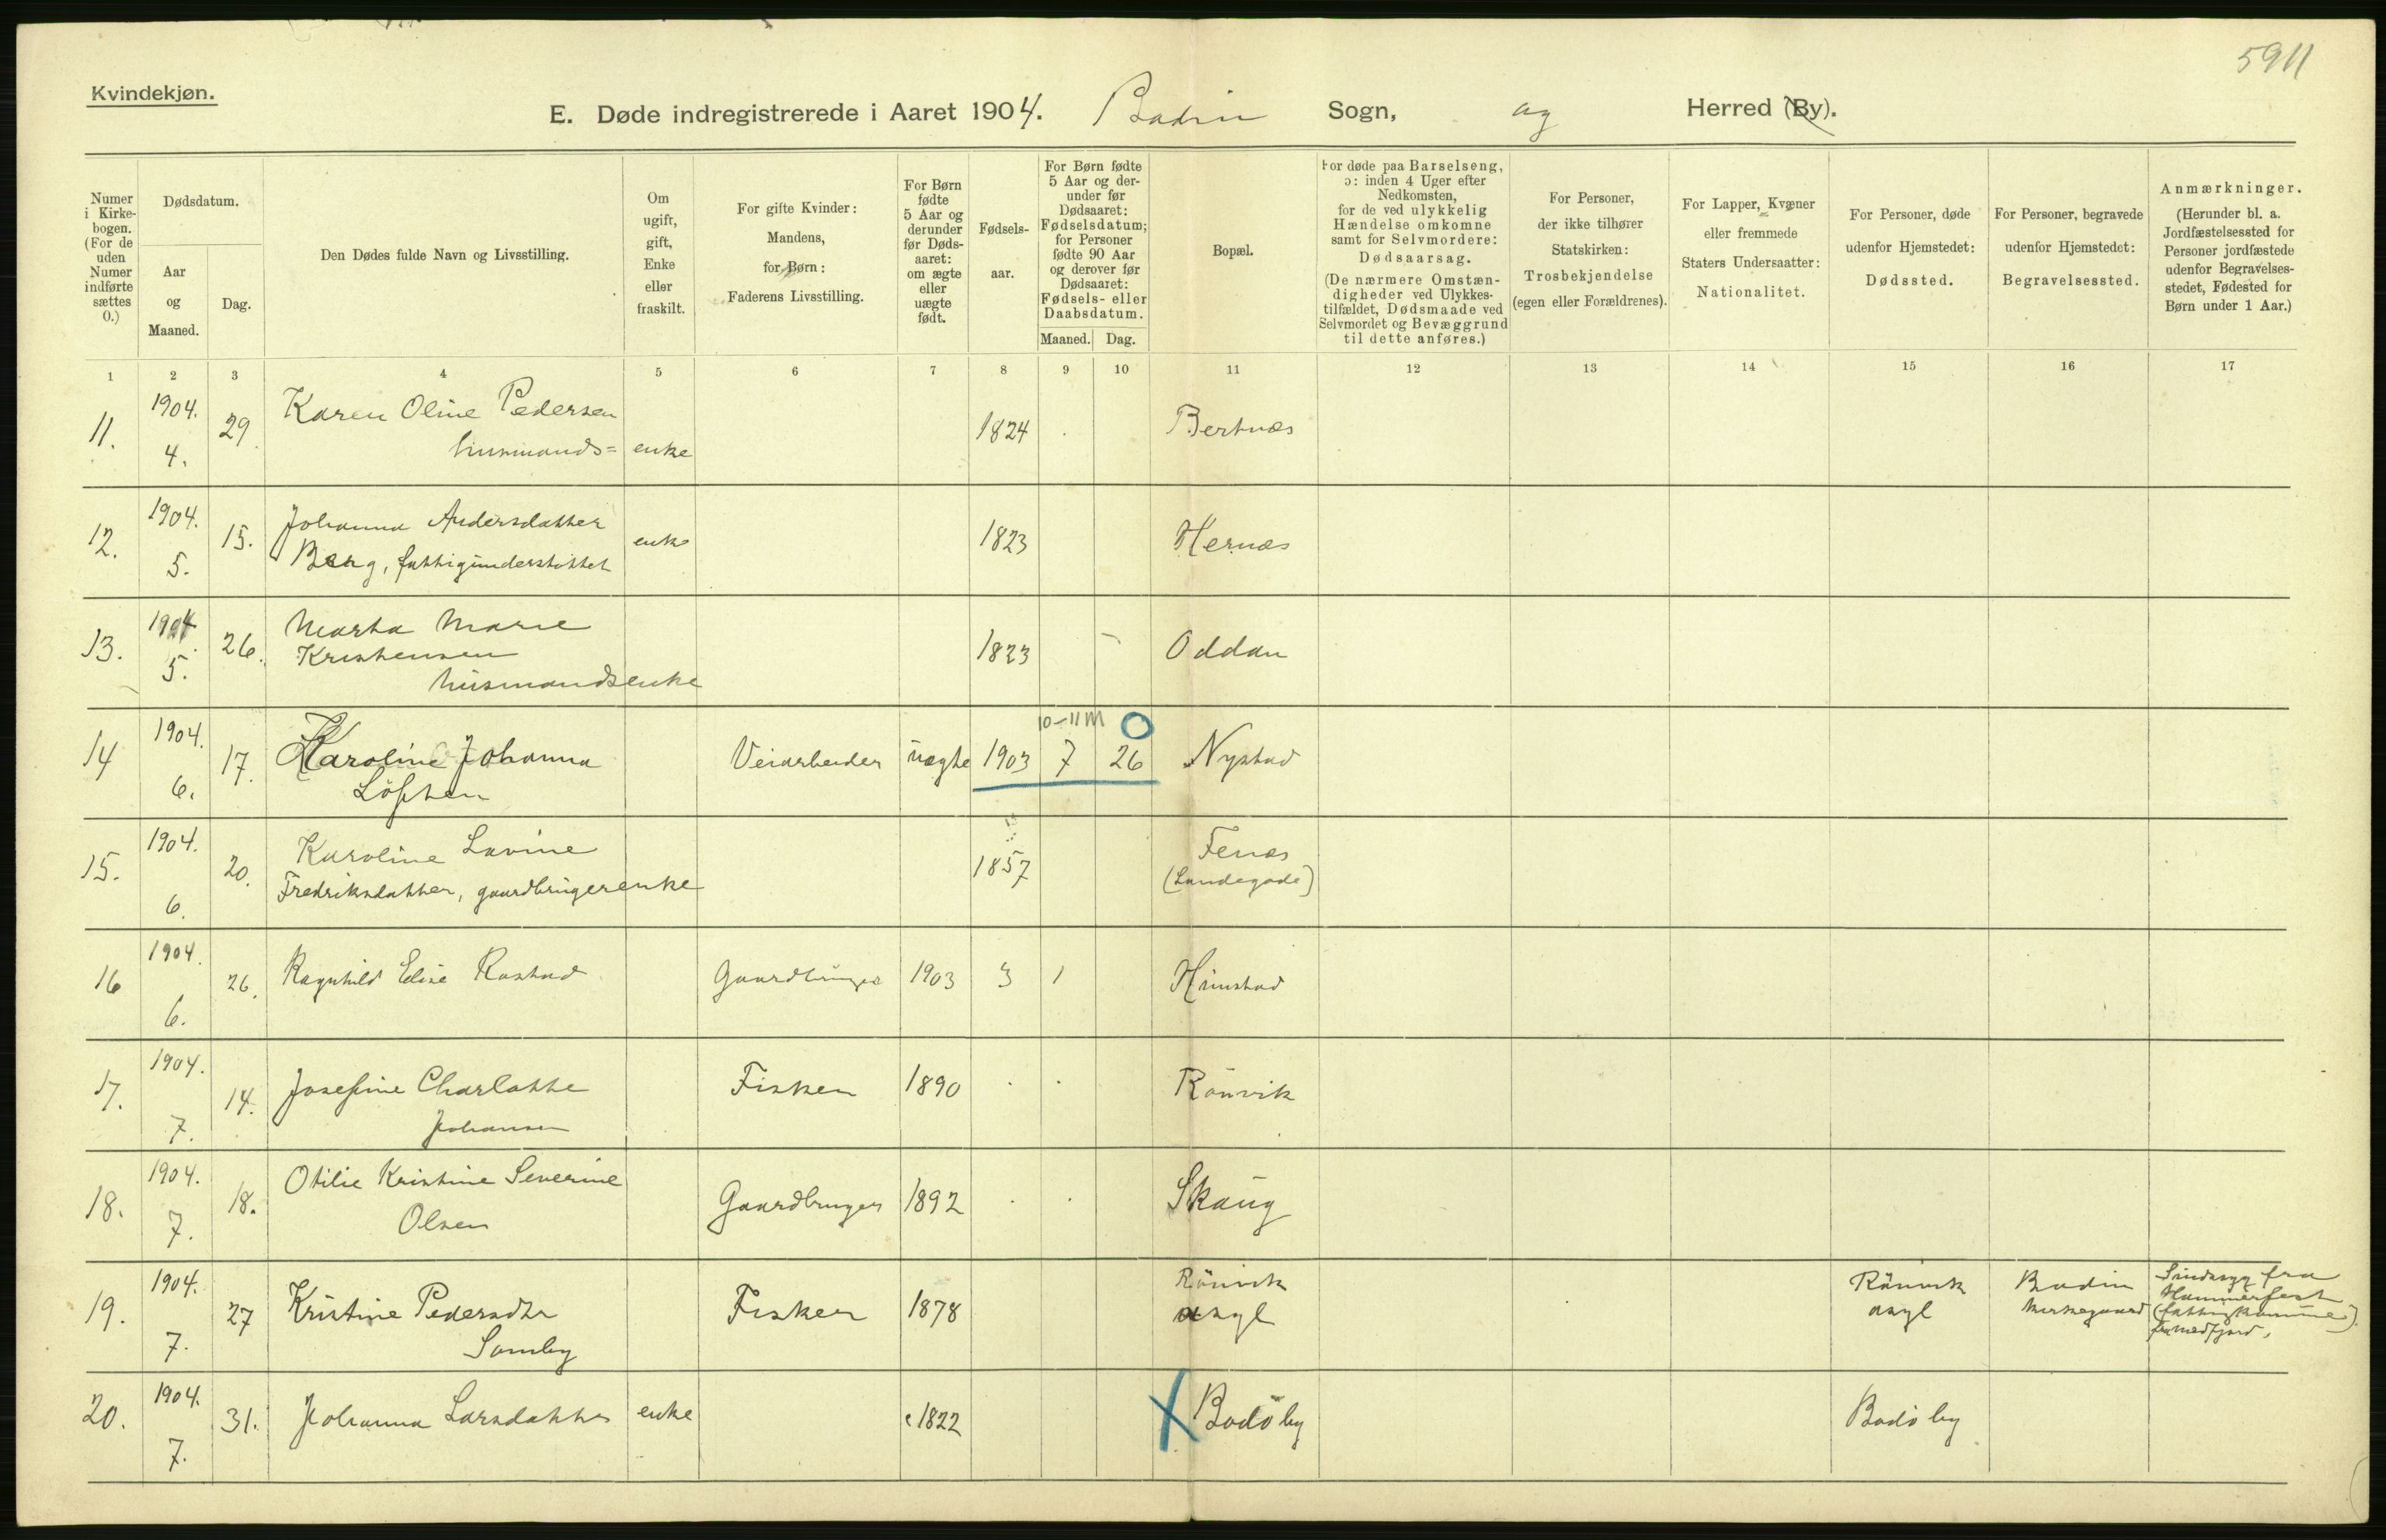 5911
Kvindekjøn.
E. Døde indregistrerede i Aaret 1904. Bodin Sogn, og Herred (By).
Numer i Kirke-bogen. (For de uden Numer indførte sættes 0.)
Dødsdatum.
Aar og Maaned.
Dag.
Den Dødes fulde Navn og Livsstilling.
Om ugift, gift, Enke eller fraskilt.
For gifte Kvinder: Mandens, for Børn: Faderens Livsstilling.
For Børn fødte 5 Aar og derunder før Døds-aaret: om ægte eller uægte født.
Fødsels-aar.
For Børn fødte 5 Aar og der-under før Dødsaaret: Fødselsdatum; for Personer fødte 90 Aar og derover før Dødsaaret: Fødsels- eller Daabsdatum.
Maaned. Dag.
Bopæl.
For døde paa Barselseng, ɔ: inden 4 Uger efter Nedkomsten, for de ved ulykkelig Hændelse omkomne samt for Selvmordere: Dødsaarsag. (De nærmere Omstæn-digheder ved Ulykkes-tilfældet, Dødsmaade ved Selvmordet og Bevæggrund til dette anføres.)
For Personer, der ikke tilhører Statskirken: Trosbekjendelse (egen eller Forældrenes).
For Lapper, Kvæner eller fremmede Staters Undersaatter: Nationalitet.
For Personer, døde udenfor Hjemstedet: Dødssted.
For Personer, begravede udenfor Hjemstedet: Begravelsessted.
Anmærkninger. (Herunder bl. a. Jordfæstelsessted for Personer jordfæstede udenfor Begravelses-stedet, Fødested for Børn under 1 Aar.)
1 2 3 4 5 6 7 8 9 10 11 12 13 14 15 16 17
11. 1904. 4. 29 Karen Oline Pedersen husmands= enke 1824 Bertnæs
12. 1904. 5. 15. Johanna Andersdatter Berg, fattigunderstøttet enke 1823 Hernæs
13. 1904. 5. 26. Marta Marie Kristensen husmandsenke 1823 Oddan
14 1904. 6. 17. Karoline Johanna Löften Veiarbeider uægte 1903 10-11 M 7 26 O Nystad
15. 1904. 6. 20. Karoline Lovine Fredriksdatter, gaardbrugerenke 1857 Fenes (Landegode)
16 1904. 6. 26. Ragnhild Elise Rostad Gaardbruger 1903 3 1 Hunstad
17. 1904. 7. 14. Josefine Charlotte Johansen Fisker 1890 Rönvik
18. 1904. 7. 18. Otilie Kristine Severine Olsen Gaardbruger 1892 Skaug
19. 1904. 7. 27 Kristine Pedersdtr Somby Fisker 1878 Rönvik asyl Rönvik asyl Bodin kirkegaard Sindssyg fra Hammerfest (fattigkomune)
20. 1904. 7. 31. Johanna Larsdatter enke 1822 X Bodö by Bodö by